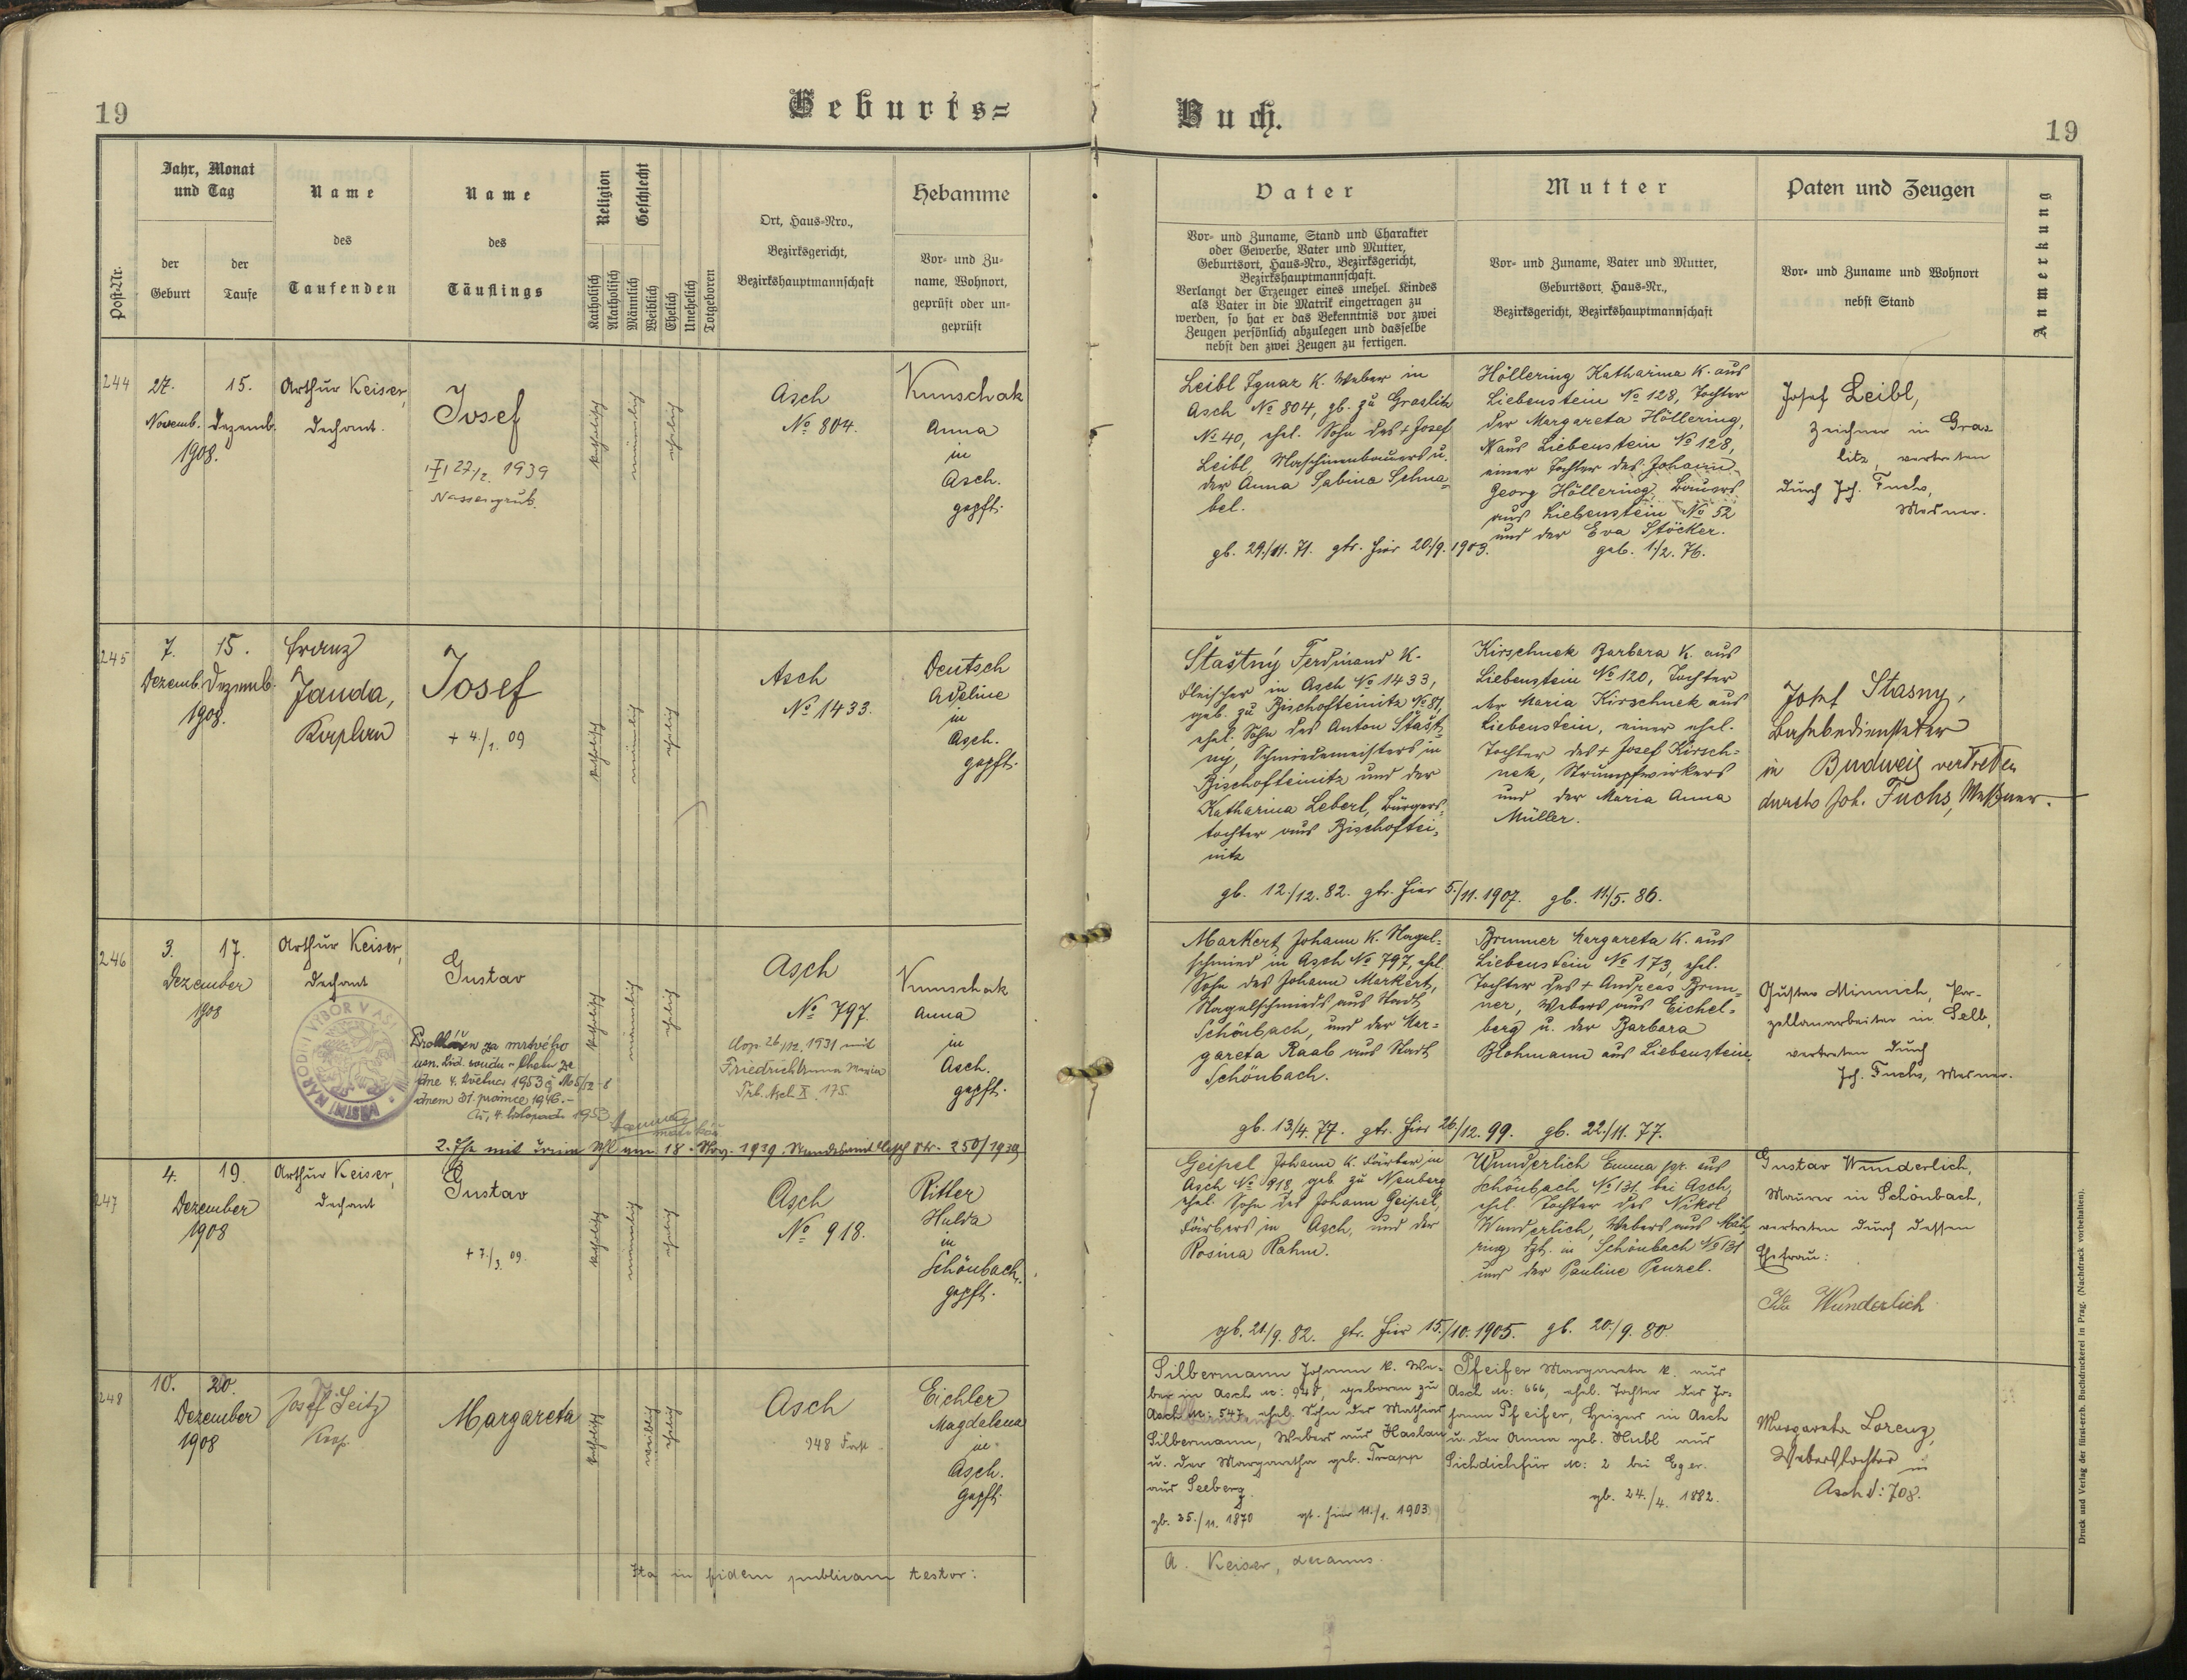 19
Geburts=
Buch.
19
Post-Nr.
Jahr, Monat
und Tag
der
Geburt
der
Taufe
Name
des
Taufenden
Name
des
Täuflings
Religion
Katholisch
Akatholisch
Geschlecht
Männlich
Weiblich
Ehelich
Unehelich
Totgeboren
Ort, Haus-Nro.,
Bezirksgericht,
Bezirkshauptmannschaft
Hebamme
Vor- und Zu-
name, Wohnort,
geprüft oder un-
geprüft
Vater
Vor- und Zuname, Stand und Charakter
oder Gewerbe, Vater und Mutter,
Geburtsort, Haus-Nro., Bezirksgericht,
Bezirkshauptmannschaft.
Verlangt der Erzeuger eines unehel. Kindes
als Vater in die Matrik eingetragen zu
werden, so hat er das Bekenntnis vor zwei
Zeugen persönlich abzulegen und dasselbe
nebst den zwei Zeugen zu fertigen.
Mutter
Vor- und Zuname, Vater und Mutter,
Geburtsort, Haus-Nr.,
Bezirksgericht, Bezirkshauptmannschaft
Paten und Zeugen
Vor- und Zuname und Wohnort
nebst Stand
Anmerkung
244
27.
Novemb.
1908.
15.
Dezemb.
Arthur Keiser,
Dechant.
Josef
27/2. 1939
Nassengrub.
katholisch
männlich
ehelich
Asch
No 804.
Kunschak
Anna
in
Asch.
gepft.
Leibl Ignaz k. Weber in
Asch No 804, gb. zu Graslitz
No 40, ehel. Sohn des + Josef
Leibl, Maschinenbauers u.
der Anna Sabina Schna=
bel.
gb. 29./11. 71. gtr. hier 20./9. 1903.
Höllering Katharina k. aus
Liebenstein No 128, Tochter
der Margareta Höllering,
aus Liebenstein No 128,
einer Tochter des Johann
Georg Höllering, Bauers
aus Liebenstein No 52
und der Eva Stöcker.
geb. 1./2. 76.
Josef Leibl,
Zeichner in Gras=
litz, vertreten
durch Joh. Fuchs,
Mesner.
245
7.
Dezemb.
1908.
15.
Dezemb.
Franz
Janda,
Kaplan
Josef
+ 4./1. 09
katholisch
männlich
ehelich
Asch
No 1433.
Deutsch
Adeline
in
Asch.
gepft.
Šťastný Ferdinand k.
Fleischer in Asch No 1433,
geb. zu Bischofteinitz No 81,
ehel. Sohn des Anton Šťast=
ný, Schmiedemeisters in
Bischofteinitz und der
Katharina Leberl, Bürgers=
tochter aus Bischoftei=
nitz
gb. 12./12. 82. gtr. hier 5./11. 1907. gb. 11./5. 86.
Kirschnek Barbara k. aus
Liebenstein No 120, Tochter
der Maria Kirschnek aus
Liebenstein, einer ehel.
Tochter des + Josef Kirsch=
nek, Strumpfwirkers
und der Maria Anna
Müller.
Josef Stasny,
Bahnbediensteter
in Budweis vertreten
durch Joh. Fuchs, Meßner.
246
3.
Dezember
1908
17.
Arthur Keiser,
Dechant
Gustav
za mrtvého
usn. lid. soudu v Chebu ze
dne 4. května 1953
dnem 31. prosince 1946.-
Aš, 4. listopadu 1953
2. Ehe mit am 18. Nov. 1939. Standesamt Asch Nr. 250/1939
katholisch
männlich
ehelich
Asch
No 797.
Cop 26/12. 1931 mit
Friedrich Maria
Trb. Asch X 175.
Kunschak
Anna
in
Asch.
gepft.
Markert Johann k. Nagel=
schmied in Asch No 797, ehel.
Sohn des Johann Markert,
Nagelschmieds aus Stadt
Schönbach, und der Mar=
gareta Raab aus Stadt
Schönbach.
gb. 13/4. 77. gtr. hier 26/12. 99. gb. 22./11. 77.
Brunner Margareta k. aus
Liebenstein No 173, ehel.
Tochter des + Andreas Brun=
ner, Webers aus Eichel=
berg u. der Barbara
Blohmann aus Liebenstein.
Gustav Minnich, Por=
zellanarbeiter in Selb,
vertreten durch
Joh. Fuchs, Mesner.
247
4.
Dezember
1908
19.
Arthur Keiser,
Dechant
Gustav
+ 7./3. 09.
katholisch
männlich
ehelich
Asch
No 918.
Ritter
Hulda
in
Schönbach.
gepft.
Geipel Johann k. Färber in
Asch No 918, geb. zu Neuberg
ehel. Sohn des Johann Geipel,
Färbers in Asch, und der
Rosina Rahm.
gb. 21/9. 82. gtr. hier 15./10. 1905. gb. 20./9. 80.
Wunderlich Emma pr. aus
Schönbach No 131 bei Asch,
ehel. Tochter des Nikol
Wunderlich, Webers aus Mäh=
ring in Schönbach No 131
und der Pauline Penzel.
Gustav Wunderlich,
Maurer in Schönbach,
vertreten durch dessen
Ehefrau:
Ida Wunderlich
248
10.
Dezember
1908
20.
Josef Seitz
Kap.
Margareta
katholisch
weiblich
ehelich
Asch
948
Eichler
Magdalena
in
Asch.
Gepft.
Silbermann Johann k. We=
ber in Asch N: 948, geboren zu
Asch N: 547, ehel. Sohn des Mathias
Silbermann, Webers aus Haslau
u. der Margaretha geb. Trapp
aus Seeberg.
gb. 35./11. 1870 gt. hier 11./1. 1903
Pfeifer Margareta k. aus
Asch N: 666, ehel. Tochter des Jo=
hann Pfeifer, Heizer in Asch
u. der Anna geb. Hubl aus
Sichdichfür N: 2 bei Eger.
gb. 24./4. 1882.
Margareta Lorenz,
Weberstochter in
Asch N: 708.
Ita in fidem publicam testor:
A. Keiser, decanus.
Druck und Verlag der fürsterzb. Buchdruckerei in Prag. (Nachdruck vorbehalten).